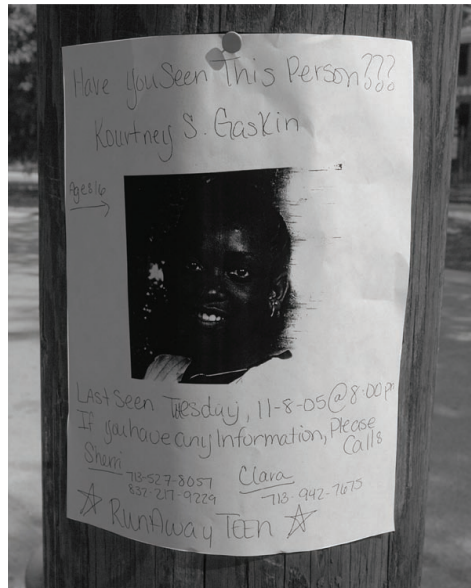 Have you Seen This Person???
Kourtney S. Gaskin
Age: 16
Last Seen Tuesday, 11-8-05 @ 8:00 pm
If you have any Information, Please
Call:
Sherri
713-527-8057
832-217-9229
Clara
713-942-7675
☆ RunAway TEEN ☆